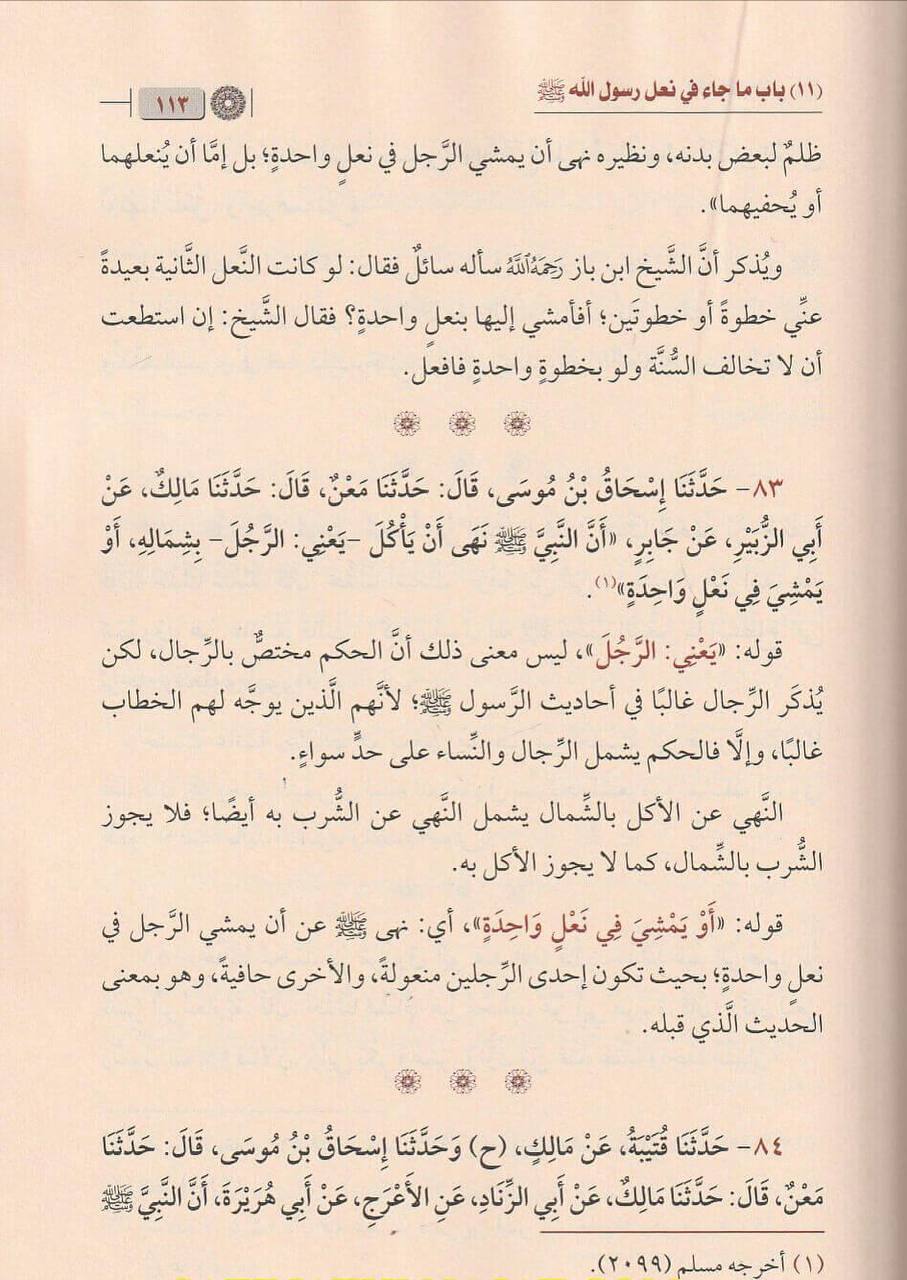 (١١) باب ما جاء في نعل رسول الله ﷺ
١١٣
ظلمٌ لبعض بدنه، ونظيره نهى أن يمشي الرَّجل في نعلٍ واحدةٍ؛ بل إمَّا أن يُنعلهما
أو يُحفيهما».
ويُذكر أنَّ الشَّيخ ابن باز رَحِمَهُ ٱللَّهُ سأله سائلٌ فقال: لو كانت النَّعل الثَّانية بعيدةً
عنِّي خطوةً أو خطوتَين؛ أفأمشي إليها بنعلٍ واحدةٍ؟ فقال الشَّيخ: إن استطعت
أن لا تخالف السُّنَّة ولو بخطوةٍ واحدةٍ فافعل.
٨٣- حَدَّثَنَا إِسْحَاقُ بْنُ مُوسَى، قَالَ: حَدَّثَنَا مَعْنٌ، قَالَ: حَدَّثَنَا مَالِكٌ، عَنْ
أَبِي الزُّبَيْرِ، عَنْ جَابِرٍ، «أَنَّ النَّبِيَّ ﷺ نَهَى أَنْ يَأْكُلَ -يَعْنِي: الرَّجُلَ- بِشِمَالِهِ، أَوْ
يَمْشِيَ فِي نَعْلٍ وَاحِدَةٍ»(١).
قوله: «يَعْنِي: الرَّجُلَ»، ليس معنى ذلك أنَّ الحكم مختصٌّ بالرِّجال، لكن
يُذكَر الرِّجال غالبًا في أحاديث الرَّسول ﷺ؛ لأنَّهم الَّذين يوجَّه لهم الخطاب
غالبًا، وإلَّا فالحكم يشمل الرِّجال والنِّساء على حدٍّ سواءٍ.
النَّهي عن الأكل بالشِّمال يشمل النَّهي عن الشُّرب به أيضًا؛ فلا يجوز
الشُّرب بالشِّمال، كما لا يجوز الأكل به.
قوله: «أَوْ يَمْشِيَ فِي نَعْلٍ وَاحِدَةٍ»، أي: نهى ﷺ عن أن يمشي الرَّجل في
نعلٍ واحدةٍ؛ بحيث تكون إحدى الرِّجلين منعولةً، والأخرى حافيةً، وهو بمعنى
الحديث الَّذي قبله.
٨٤- حَدَّثَنَا قُتَيْبَةُ، عَنْ مَالِكٍ، (ح) وَحَدَّثَنَا إِسْحَاقُ بْنُ مُوسَى، قَالَ: حَدَّثَنَا
مَعْنٌ، قَالَ: حَدَّثَنَا مَالِكٌ، عَنْ أَبِي الزِّنَادِ، عَنِ الأَعْرَجِ، عَنْ أَبِي هُرَيْرَةَ، أَنَّ النَّبِيَّ ﷺ
(١) أخرجه مسلم (٢٠٩٩).